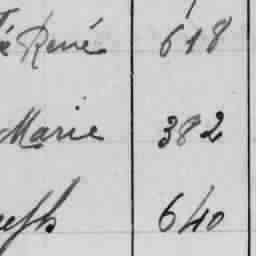 é René 618
Marie 382
eph 640